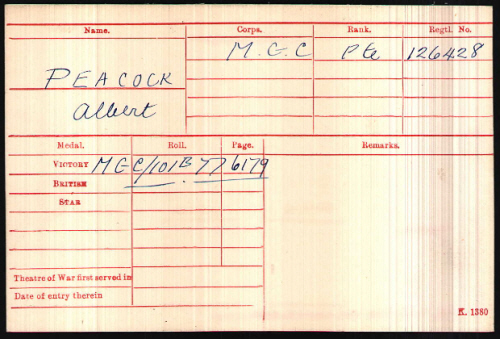 Name. Corps. Rank. Regtl. No.
M.G.C Pte 126428
PEACOCK
Albert
Medal. Roll. Page. Remarks.
VICTORY MGC/101B77 6179
BRITISH
STAR
Theatre of War first served in
Date of entry therein
K. 1380